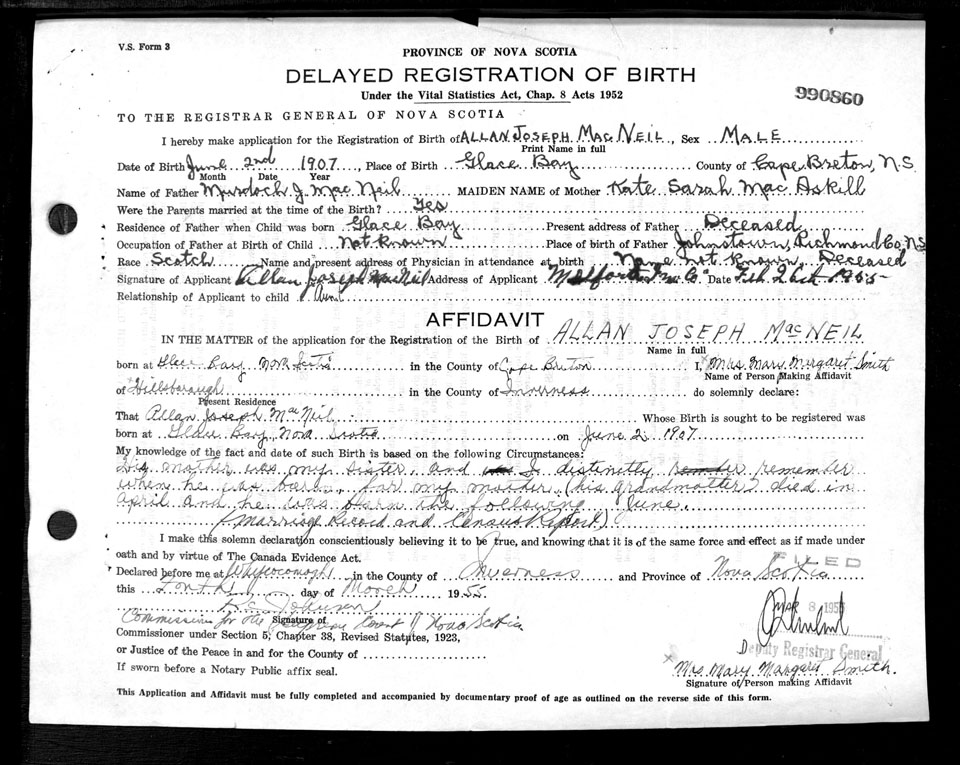 V.S. Form 3
PROVINCE OF NOVA SCOTIA
DELAYED REGISTRATION OF BIRTH
Under the Vital Statistics Act, Chap. 8 Acts 1952
990860
TO THE REGISTRAR GENERAL OF NOVA SCOTIA
I hereby make application for the Registration of Birth of ALLAN JOSEPH MacNEIL, Sex MALE
Print Name in full
Date of Birth June 2nd 1907, Place of Birth Glace Bay County of Cape Breton, N.S
Month Date Year
Name of Father Murdoch J. MacNeil MAIDEN NAME of Mother Kate Sarah MacAskill
Were the Parents married at the time of the Birth? Yes
Residence of Father when Child was born Glace Bay Present address of Father Deceased
Occupation of Father at Birth of Child Not Known Place of birth of Father Johnstown, Richmond Co. N.S
Race Scotch Name and present address of Physician in attendance at birth Name not known, Deceased
Signature of Applicant Allan Joseph MacNeil Address of Applicant Date Feb 1955
Relationship of Applicant to child
AFFIDAVIT
IN THE MATTER of the application for the Registration of the Birth of ALLAN JOSEPH MacNEIL
Name in full
born at Glace Bay Nova Scotia in the County of Cape Breton I, Mrs Mary Margaret Smith
Name of Person Making Affidavit
of Hillsborough in the County of Inverness do solemnly declare:
Present Residence
That Allan Joseph MacNeil Whose Birth is sought to be registered was
born at Glace Bay, Nova Scotia on June 2, 1907
My knowledge of the fact and date of such Birth is based on the following Circumstances:
His mother was my sister, and I distinctly remember
when he was born, for my mother (his grandmother) died in
April and he was born the following June.
(Marriage Record and Census Report)
I make this solemn declaration conscientiously believing it to be true, and knowing that it is of the same force and effect as if made under
oath and by virtue of The Canada Evidence Act.
FILED
Declared before me at Whycocomagh in the County of Inverness and Province of Nova Scotia
this Tenth day of March 1955.
Johnson
Commission for the Supreme Court of Nova Scotia
Signature of
Commissioner under Section 5, Chapter 38, Revised Statutes, 1923,
or Justice of the Peace in and for the County of
Deputy Registrar General
If sworn before a Notary Public affix seal.
x Mrs. Mary Margaret Smith.
Signature of Person making Affidavit
This Application and Affidavit must be fully completed and accompanied by documentary proof of age as outlined on the reverse side of this form.